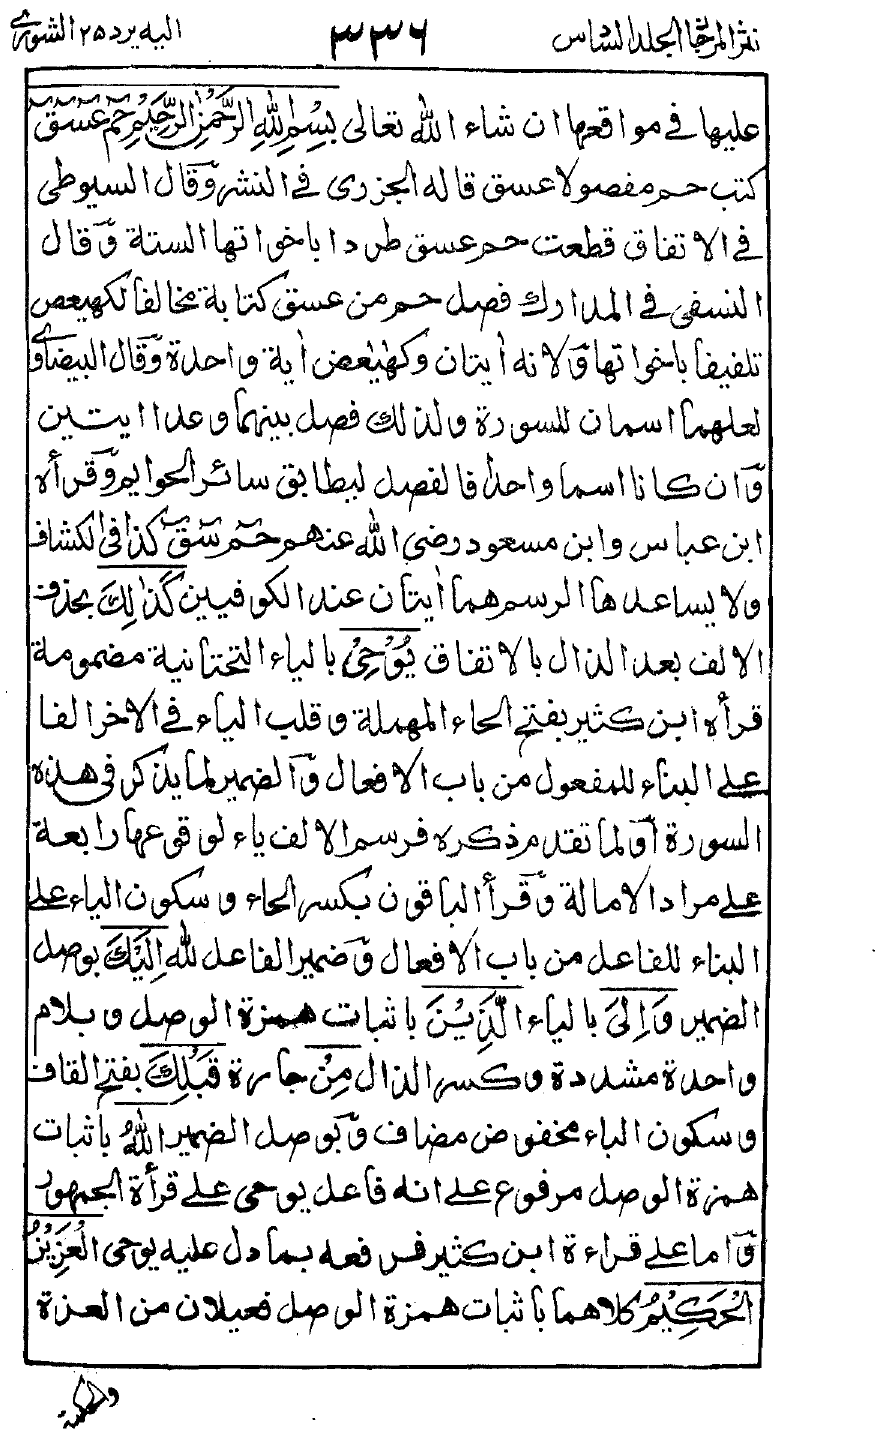 نثر المرجان الجلد السادس ٣٣٦ اليه يرد ٢٥ الشورى
عليها في مواقعها ان شاء الله تعالى بِسْمِ اللهِ الرَّحْمٰنِ الرَّحِيْمِ حٰمٓ عٓسٓقٓ
كتب حم مفصولا عسق قاله الجزرى في النشر وقال السيوطى
في الاتفاق قطعت حم عسق طردا باخواتها الستة وقال
النسفى في المدارك فصل حم من عسق كتابة مخالفا لكهيعص
تلفيفا باخواتها ولانه اٰيتان وكهيعص اٰية واحدة وقال البيضاوى
لعلهما اسمان للسورة ولذلك فصل بينهما وعدا ايتين
وان كانا اسما واحدا فالفصل ليطابق سائر الحواميم وقرأه
ابن عباس وابن مسعود رضى الله عنهم حٰمٓ سٓقٓ كذا في الكشاف
ولا يساعدها الرسم هما اٰيتان عند الكوفيين كَذٰلِكَ بحذف
الالف بعد الذال بالاتفاق يُوْحِيْ بالياء التحتانية مضمومة
قرأه ابن كثير بفتح الحاء المهملة وقلب الياء في الاخر الفا
على البناء للمفعول من باب الافعال والضمير لما يذكر في هذه
السورة او لما تقدم ذكره فرسم الالف ياء لوقوعها رابعة
على مراد الامالة وقرأ الباقون بكسر الحاء وسكون الياء على
البناء للفاعل من باب الافعال وضمير الفاعل لله اِلَيْكَ بوصل
الضمير وَاِلَى بالياء الَّذِيْنَ باثبات همزة الوصل وبلام
واحدة مشددة وكسر الذال مِنْ جارة قَبْلِكَ بفتح القاف
وسكون الباء مخفوض مضاف وبوصل الضمير اللهُ باثبات
همزة الوصل مرفوع على انه فاعل يوحى على قرأة الجمهور
واما على قراءة ابن كثير فرفعه بما دل عليه يوحى الْعَزِيْزُ
الْحَكِيْمُ كلاهما باثبات همزة الوصل فعيلان من العزة
والحكمة